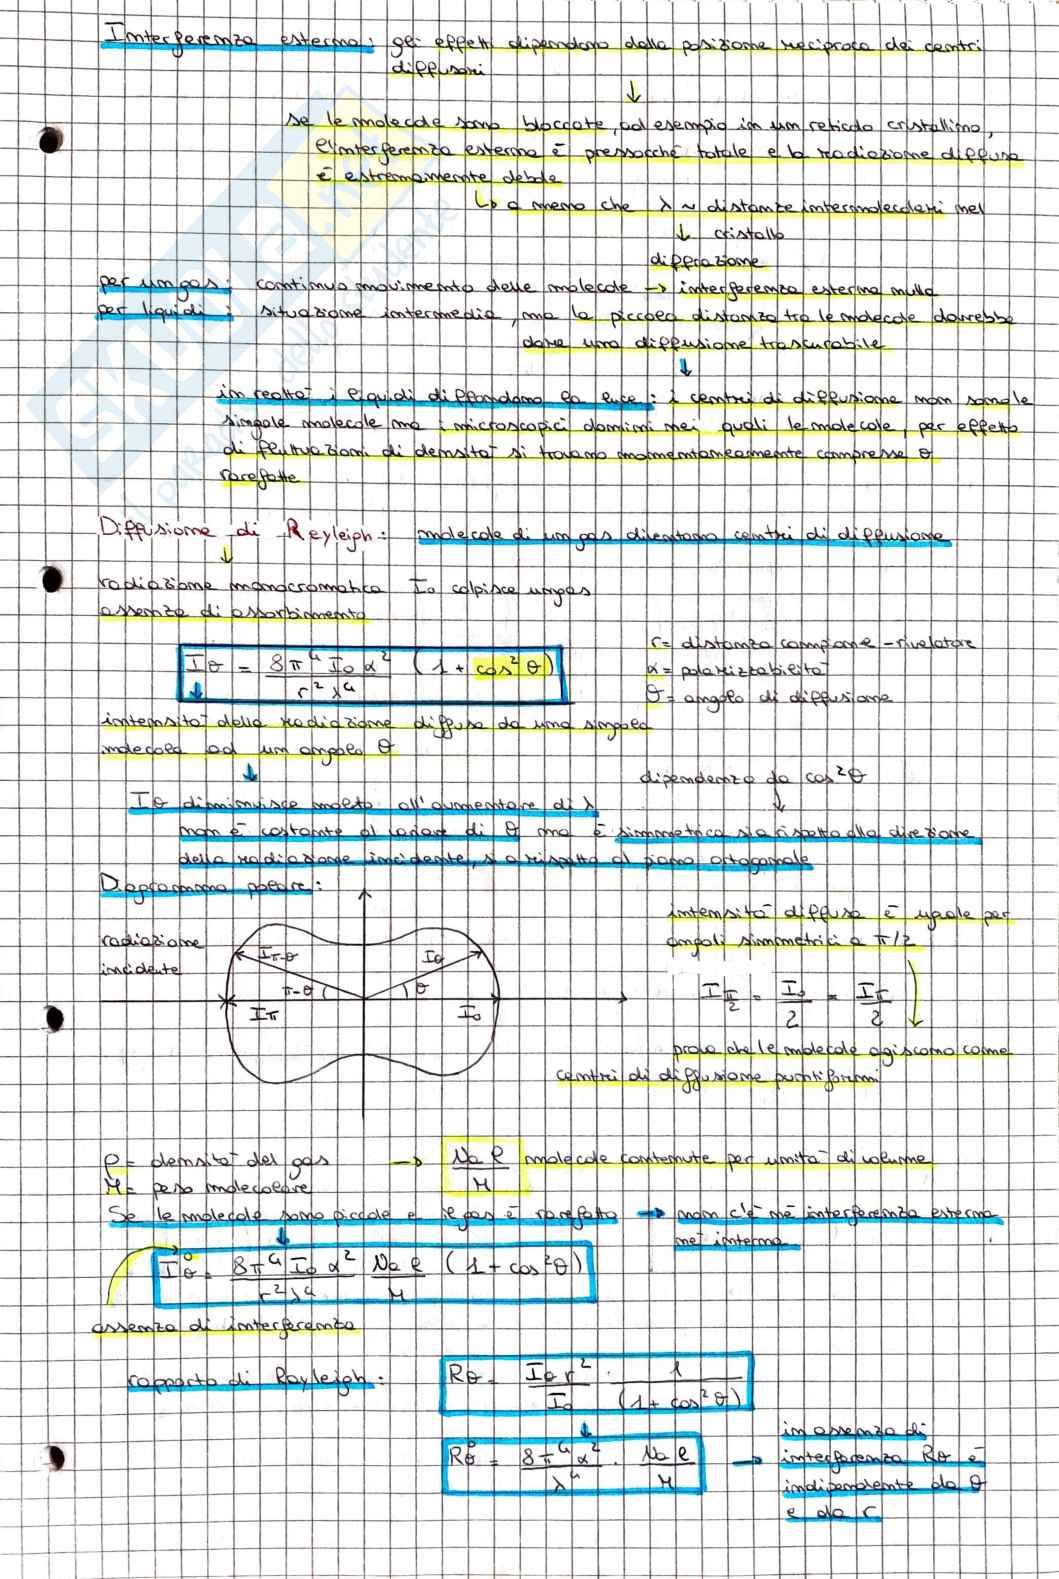 Interferenza esterna: gli effetti dipendono dalla posizione reciproca dei centri
diffusori
↓
se le molecole sono bloccate, ad esempio in un reticolo cristallino,
l'interferenza esterna è pressocché totale e la radiazione diffusa
è estremamente debole
↳ a meno che λ ~ distanze intermolecolari nel
↓ cristallo
diffrazione
per un gas: continuo movimento delle molecole → interferenza esterna nulla
per liquidi: situazione intermedia, ma la piccola distanza tra le molecole dovrebbe
dare una diffusione trascurabile
↓
in realtà i liquidi diffondono la luce: i centri di diffusione non sono le
singole molecole ma i microscopici domini nei quali le molecole, per effetto
di fluttuazioni di densità si trovano momentaneamente compresse o
rarefatte
Diffusione di Reyleigh: molecole di un gas diventano centri di diffusione
↓
radiazione monocromatica I₀ colpisce un gas
assenza di assorbimento
Iθ = 8π⁴ I₀ α² / r² λ⁴ (1 + cos²θ)
r = distanza campione - rivelatore
α = polarizzabilità
θ = angolo di diffusione
↓
intensità della radiazione diffusa da una singola
molecola ad un angolo θ
↓
dipendenza da cos²θ
↓
Iθ diminuisce molto all'aumentare di λ
non è costante al variare di θ ma è simmetrica sia rispetto alla direzione
della radiazione incidente, sia rispetto al piano ortogonale
Diagramma polare:
intensità diffusa è uguale per
angoli simmetrici a π/2
radiazione
incidente
Iπ-θ Iθ
π-θ θ
Iπ I₀
Iπ/2 = I₀/2 = Iπ/2
prova che le molecole agiscono come
centri di diffusione puntiformi
ρ = densità del gas → Na ρ / M molecole contenute per unità di volume
M = peso molecolare
Se le molecole sono piccole e il gas è rarefatto → non c'è né interferenza esterna
né interna
↓
I°θ = 8π⁴ I₀ α² / r² λ⁴ Na ρ / M (1 + cos²θ)
assenza di interferenza
rapporto di Rayleigh: Rθ = Iθ r² / I₀ · 1 / (1 + cos²θ)
↓
R°θ = 8π⁴ α² / λ⁴ · Na ρ / M →
in assenza di
interferenza Rθ è
indipendente da θ
e da r